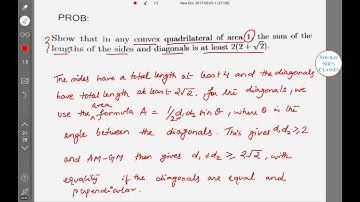 New Doc 2017-06-03 1 (21/38)
1.5
PROB:
Show that in any convex quadrilateral of area 1, the sum of the
lengths of the sides and diagonals is at least 2(2 + √2).
SOURAV
SIR'S
CLASSES
The sides have a total length at least 4 and the diagonals
have total length at least 2√2. For the diagonals, we
use the area formula A = 1/2 d₁d₂ sin θ, where θ is the
angle between the diagonals. This gives d₁d₂ ≥ 2
and AM-GM then gives d₁+d₂ ≥ 2√2, with
equality if the diagonals are equal and
perpendicular.